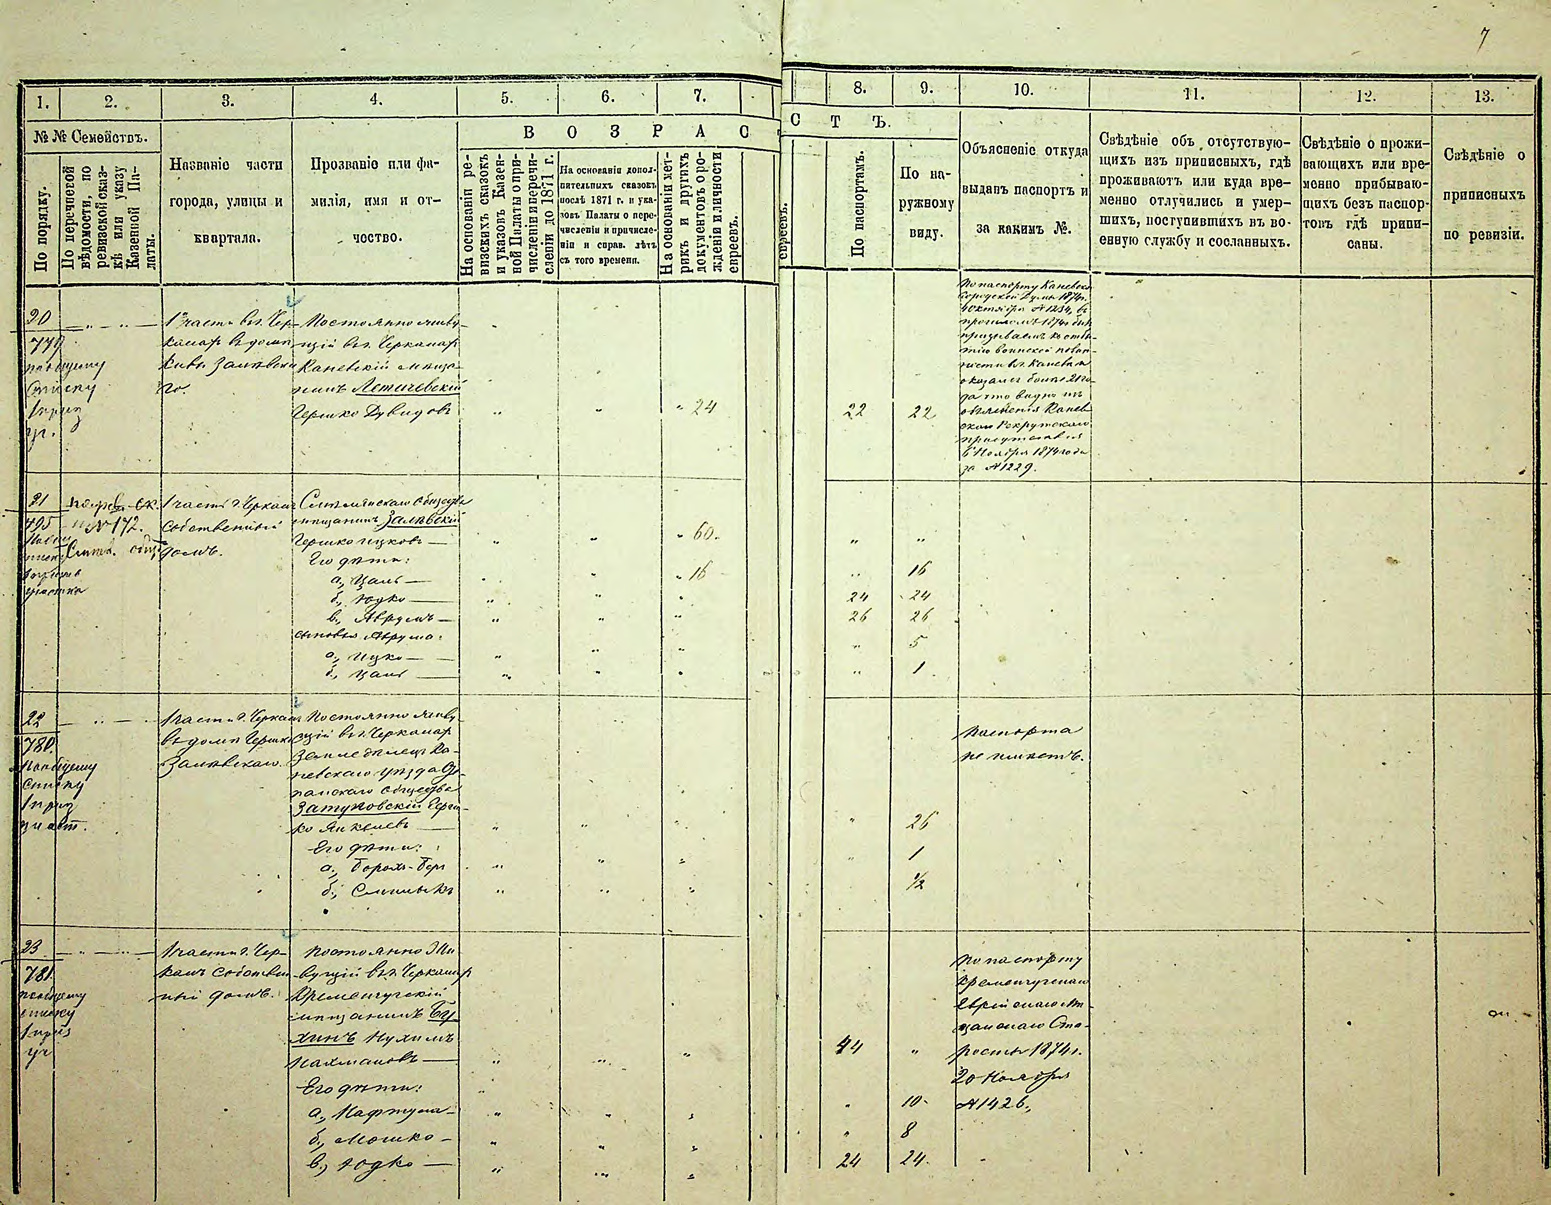 7
1. 2. 3. 4. 5. 6. 7. 8. 9. 10. 11. 12. 13.
№№ Семействъ.
По порядку.
По перечневой
вѣдомости, по
ревизской сказ-
кѣ или указу
Казенной Па-
латы.
Названіе части
города, улицы и
квартала.
Прозваніе или фа-
милія, имя и от-
чество.
ВОЗРАСТЪ.
На основаніи ре-
визскихъ сказокъ
и указовъ Казен-
ной Палаты о при-
численіи и перечи-
сленіи до 1871 г.
На основаніи допол-
нительныхъ сказокъ
послѣ 1871 г. и ука-
зовъ Палаты о пере-
численіи и причисле-
ніи и справ. лѣтъ
съ того времени.
На основаніи мет-
рикъ и другихъ
документовъ о ро-
жденіи и личности
евреевъ.
евреевъ.
По паспортамъ.
По на-
ружному
виду.
Объясненіе откуда
выданъ паспортъ и
за какимъ №.
Свѣдѣніе объ отсутствую-
щихъ изъ приписныхъ, гдѣ
проживаютъ или куда вре-
менно отлучились и умер-
шихъ, поступившихъ въ во-
енную службу и сосланныхъ.
Свѣдѣніе о прожи-
вающихъ или вре-
менно прибываю-
щихъ безъ паспор-
товъ гдѣ припи-
саны.
Свѣдѣніе о
приписныхъ
по ревизіи.
20
779
по общему
списку
1 части въ г. Чер-
касах въ доме
Залѣвска
го.
Постоянно живу-
щій въ г. Черкасах
Каневскій мѣща-
нинъ Летичевскій
Гершко Дувидовъ
" " " 24 22 22
По паспорту Каневск.
Городской Думы 1874 г.
4 Октября №1234, въ
Рекрутскаго
присутствия
6 Ноября 1874 года
за №1229.
21
495
№172.
1 часть г. Черкас
собственный
домъ.
Смѣлянскаго общества
мѣщанинъ Залѣвскій
Гершко Ицковъ —
" " " 60. " "
Его дѣти:
а., Цаль — " " " 16 " 16
б., Юдко — " " " 24 24
в., Аврумъ — " " " 26 26
сыновья Аврума:
а., Ицко — " " " " 5
б., Цаль — " " " " 1
22
780.
По общему
списку
1 части г. Черкас
въ доме Гершка
Залѣвскаго.
Постоянно живу-
щій въ г. Черкасах
Земледѣлецъ Ка-
невскаго уѣзда
общества
Затуковскій Герш-
ко Янкелевъ —
" " " " 26
Его дѣти:
а., Борохъ-Беръ " " " " 1
б., " " " 1/2
Паспорта
не имѣетъ.
23
781
по общему
списку
1 части г. Чер-
касъ собствен-
ный домъ.
Постоянно Жи-
вущій въ г. Черкасах
Кременчугскій
мѣщанинъ Бу-
хинъ Нухимъ
Нахмановъ —
" " " 44 "
Его дѣти:
а., Нафтула — " " " " 10
б., Мошко — " " " " 8
в., Юдко — " " " 24 24.
По паспорту
Кременчугскаго
Еврейскаго Мѣ-
щанскаго Ста-
росты 1874 г.
20 Ноября
№1426.